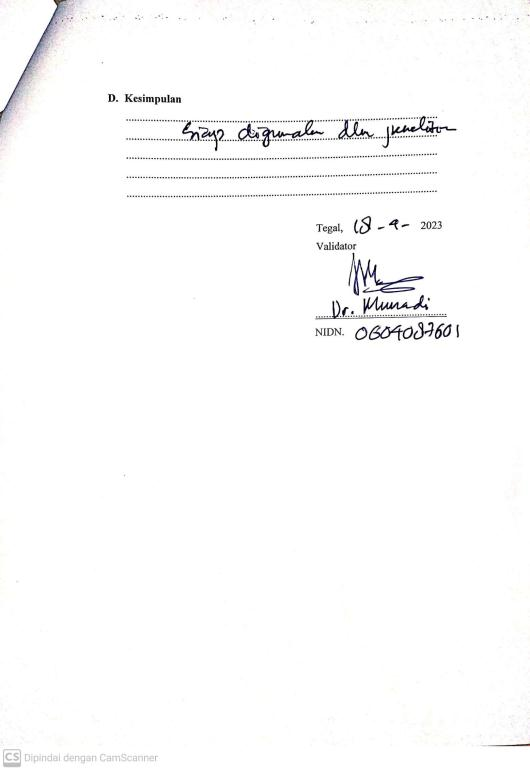 D. Kesimpulan
Siap digunakan dlm penelitian
Tegal, 18 - 9 - 2023
Validator
Dr. Munadi
NIDN. 0604087601
CS Dipindai dengan CamScanner